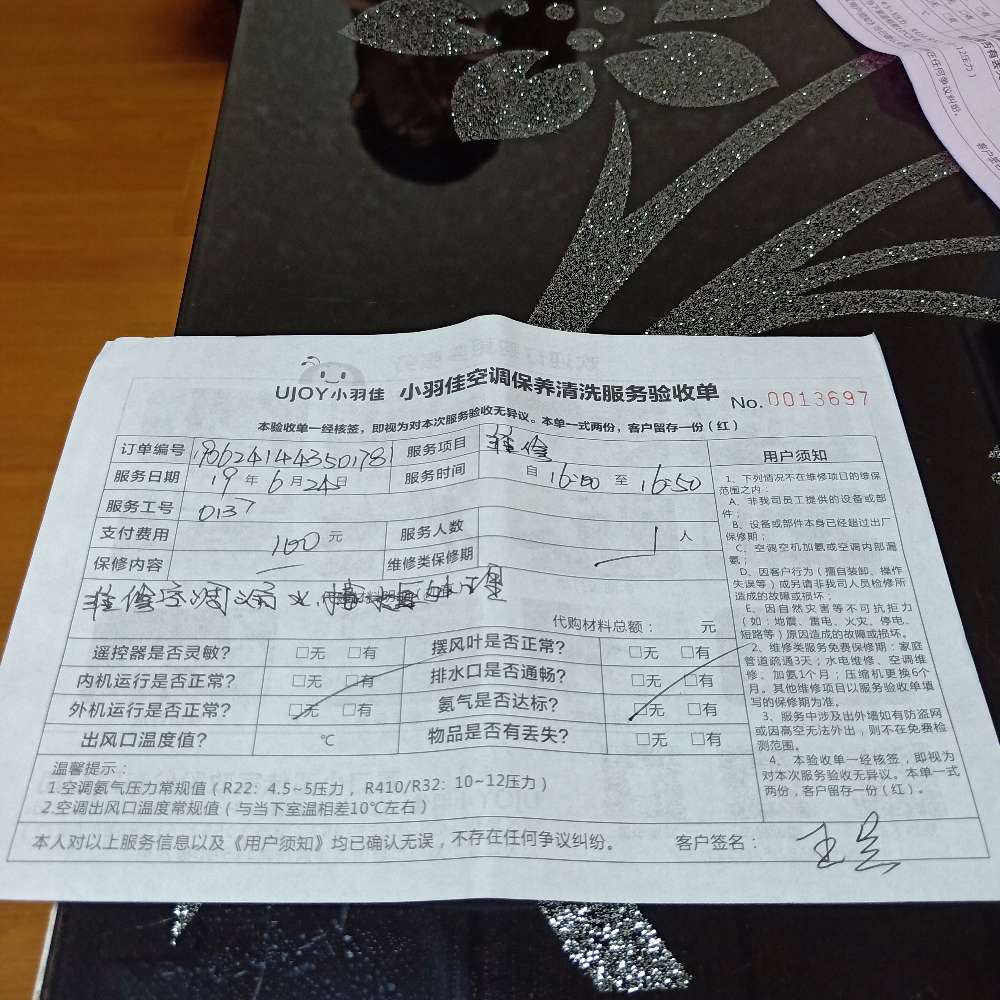 UJOY小羽佳 小羽佳空调保养清洗服务验收单 No.0013697
本验收单一经核签，即视为对本次服务验收无异议。本单一式两份，客户留存一份（红）
订单编号 服务项目 维修
服务日期 19年6月24日 服务时间 自16:00至16:50
服务工号 0137
支付费用 100元 服务人数 1人
保修内容 维修类保修期
维修空调漏水
代购材料总额： 元
遥控器是否灵敏？ □无 □有 摆风叶是否正常？ □无 □有
内机运行是否正常？ □无 □有 排水口是否通畅？ □无 □有
外机运行是否正常？ □无 □有 氨气是否达标？ □无 □有
出风口温度值？ ℃ 物品是否有丢失？ □无 □有
温馨提示：
1.空调氨气压力常规值（R22：4.5~5压力，R410/R32：10~12压力）
2.空调出风口温度常规值（与当下室温相差10℃左右）
本人对以上服务信息以及《用户须知》均已确认无误，不存在任何争议纠纷。 客户签名：
用户须知
1、下列情况不在维修项目的维保
范围之内：
A、非我司员工提供的设备或部
件；
B、设备或部件本身已经超过出厂
保修期；
C、空调空机加氨或空调内部漏
氨；
D、因客户行为（擅自装卸、操作
失误等）或另请非我司人员检修所
造成的故障或损坏；
E、因自然灾害等不可抗拒力
（如：地震、雷电、火灾、停电、
短路等）原因造成的故障或损坏。
2、维修类服务免费保修期：家庭
管道疏通3天；水电维修、空调维
修、加氨1个月；压缩机更换6个
月。其他维修项目以服务验收单填
写的保修期为准。
3、服务中涉及出外墙如有防盗网
或因高空无法外出，则不在免费检
测范围。
4、本验收单一经核签，即视为
对本次服务验收无异议。本单一式
两份，客户留存一份（红）。